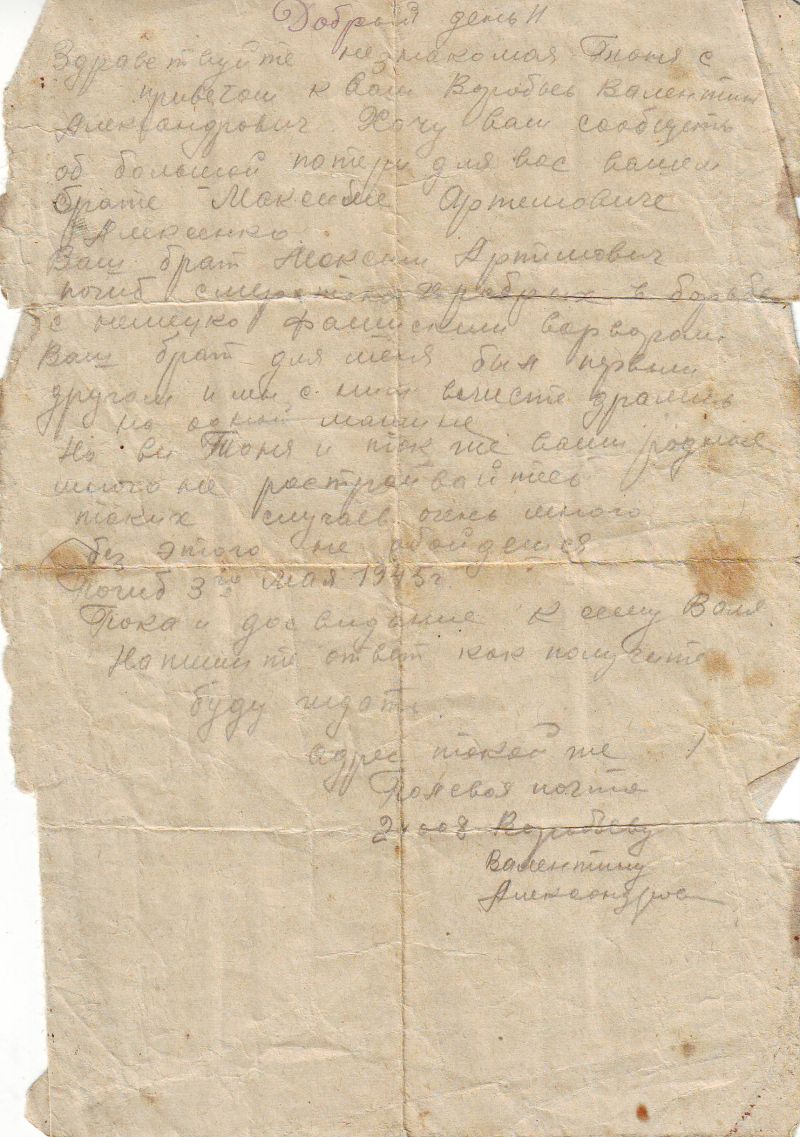 Добрый день!!
Здравствуйте незнакомая Тоня с
приветом к Вам Воробьев Валентин
Александрович. Хочу вам сообщеть
об большой потери для вас вашем
брате Максиме Артемовиче
Алексенко
Ваш брат Максим Артимович
погиб смертью храбрых в борьбе
с немецко фашискими варварами
Ваш брат для меня был первым
другом и мы с ним вместе дрались
на одной машине
Но ви Тоня и так же ваши родные
много не растрайвайтесь
таких случаев очень много
без этого не обойдешся
Погиб 3го мая 1945г.
Пока и досвидание к сему Валя
Напишите ответ как получите
буду ждать
адрес такой же
Полевая почта
Воробьеву
Валентину
Александров